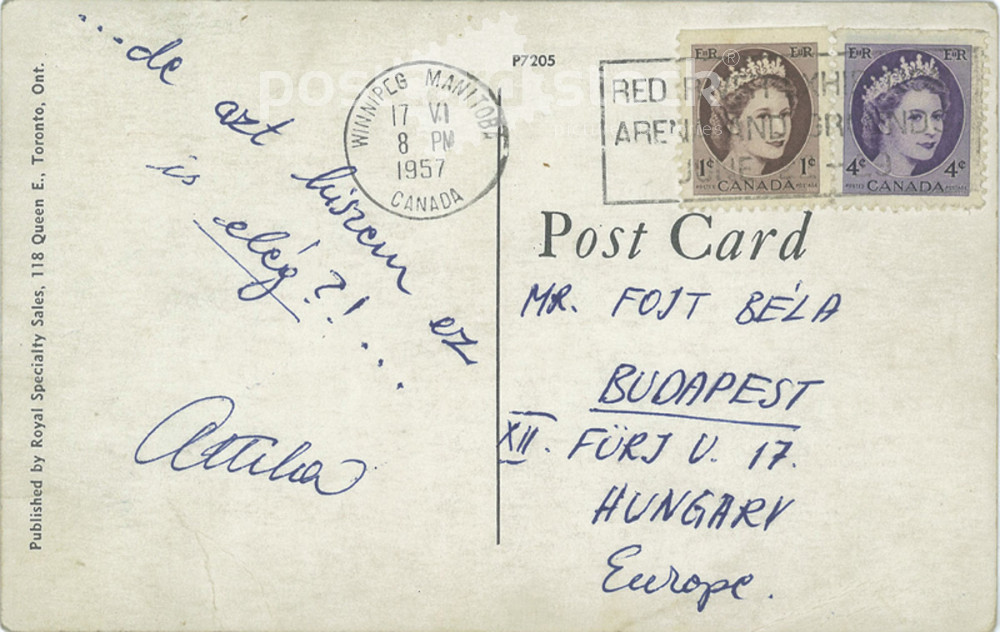 ...de
azt hiszem ez
is elég?!...
Attila
Published by Royal Specialty Sales, 118 Queen E., Toronto, Ont.
WINNIPEG MANITOBA
17 VI
8 PM
1957
CANADA
P7205
RED
AND
JUNE
EIIR EIIR
1¢ 1¢
POSTES CANADA POSTAGE
EIIR EIIR
4¢ 4¢
POSTES CANADA POSTAGE
Post Card
MR. FOJT BÉLA
BUDAPEST
XII. FÜRJ U. 17.
HUNGARY
Europe.